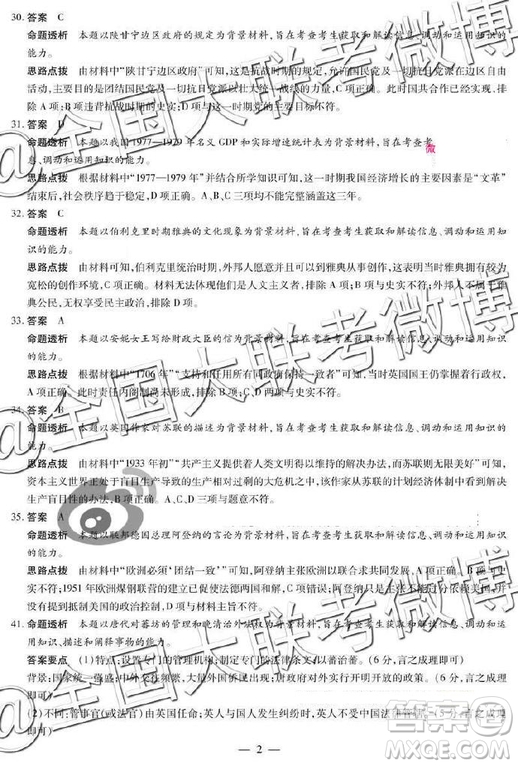 30. 答案 C
命题透析 本题以陕甘宁边区政府的规定为背景材料,旨在考查考生获取和解读信息、调动和运用知识
的能力。
思路点拨 由材料中“陕甘宁边区政府”可知,这是抗战时期的规定,允许国民党及一切抗日党派在边区自由
活动,目的是团结国民党及一切抗日党派以壮大统一战线,C项正确。此时国共合作已经实现,排
除A项;B项违背抗战时期的史实;D项与材料无关,排除。
31. 答案 D
命题透析 本题以我国1977—1979年名义GDP和实际增速统计表为背景材料,旨在考查考
息、调动和运用知识的能力。
思路点拨 根据材料中“1977—1979年”并结合所学知识可知,这一时期我国经济增长的主要因素是“文革”
结束后,社会秩序趋于稳定,D项正确。A、B、C三项均不能完整涵盖这三年。
32. 答案 C
命题透析 本题以伯利克里时期雅典的文化现象为背景材料,旨在考查考生获取和解读信息、调动和运用知
识的能力。
思路点拨 由材料可知,伯利克里统治时期,外邦人愿意到雅典从事创作,这表明当时雅典拥有较为
宽松的创作环境,C项正确。材料无法体现公民的自豪感,排除A项;外邦人不属于
雅典公民,无权享受民主政治,排除D项。
33. 答案 A
命题透析 本题以安妮女王写给财政大臣的信为背景材料,旨在考查考生获取和解读信息、调动和运用知
识的能力。
思路点拨 根据材料中“1706年”“支持和任用所有同政府保持一致者”可知,当时英国国王仍掌握着行政权,
A项正确。此时责任内阁制尚未形成,排除B项;C、D两项与史实不符。
34. 答案 B
命题透析 本题以英国作家对苏联的描述为背景材料,旨在考查考生获取和解读信息、调动和运用知识的
能力。
思路点拨 由材料中“1933年初”“共产主义提供着人类文明的希望”“而苏联则无限美好”可知,此时
资本主义世界正处于盲目生产导致的生产相对过剩的大危机之中,苏联的计划经济体制中看到了解决
生产盲目性的希望,B项正确。A、C、D三项与题意不符。
35. 答案 A
命题透析 本题以联邦德国总理阿登纳的言论为背景材料,旨在考查考生获取和解读信息、调动和运用知
识的能力。
思路点拨 由材料中“欧洲必须‘团结一致’”可知,阿登纳主张欧洲以联合求共同发展,
B项正确;1951年欧洲煤钢联营的建立已促使法德两国和解,C项错误;阿登纳
抵制美国的政治控制,D项与材料主旨不符。
41. 命题透析 本题以唐代对蕃坊的管理和晚清治外法权为背景材料,旨在考查考生获取和解读信息、调动和
运用知识,描述和阐释事物的能力。
答案要点 (1)特点:设置专门的管理机构;制定专门的法律条文;以蕃治蕃。(6分,言之成理即可)
背景:国家统一、强盛;中外
即可)
(2)不同:管事官(或法官)由英国任命;英人与人发生纠纷时,英人不受中国法律管辖。
即可)
— 2 —
@全国大联考微博